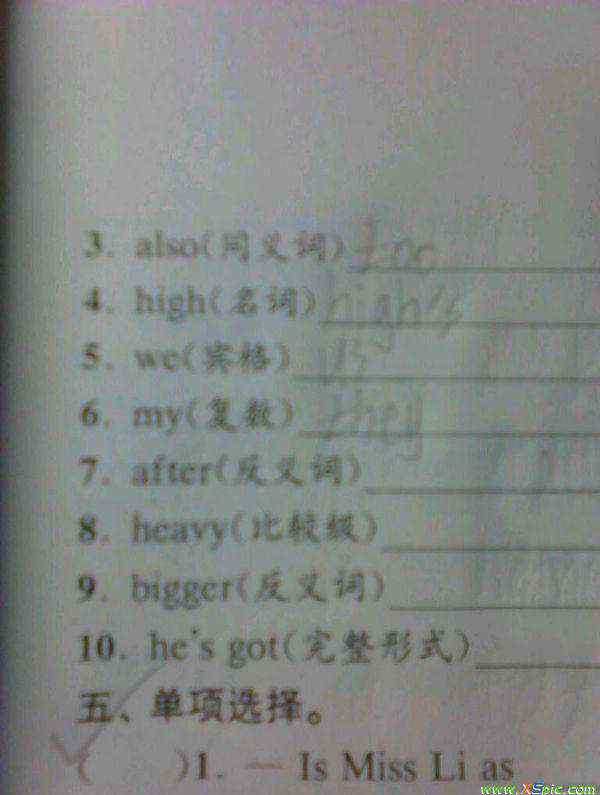 3. also(同义词) too
4. high(名词)
5. we(宾格) us
6. my(复数) they
7. after(反义词)
8. heavy(比较级)
9. bigger(反义词)
10. he's got(完整形式)
五、单项选择。
( )1. — Is Miss Li as
www.XSpic.com